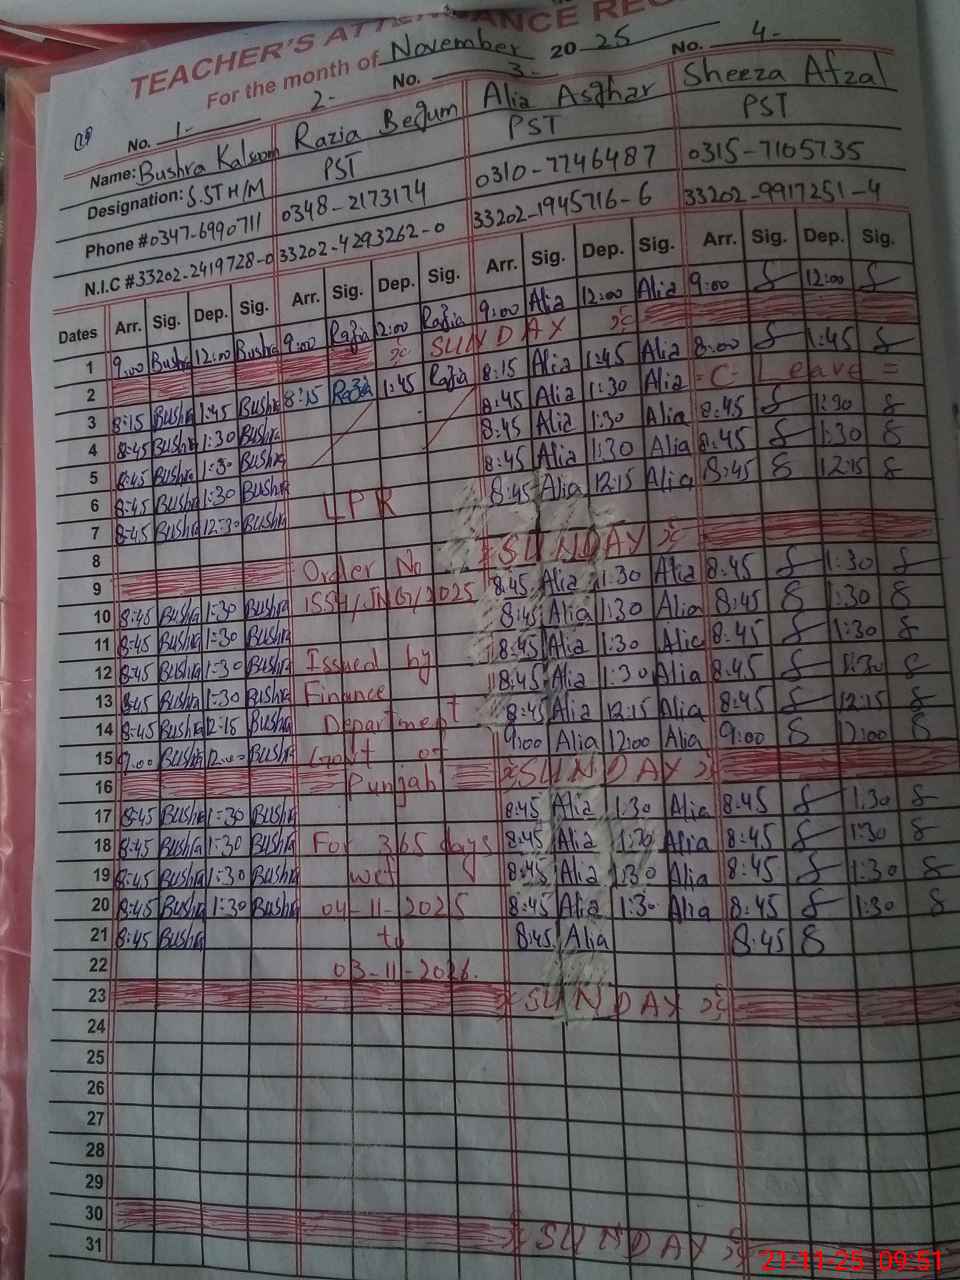 TEACHER'S ATTENDANCE RE
For the month of November 2025
No. 1- 2- No. 3- No. 4-
Name: Bushra Kalsoom Razia Begum Alia Asghar Sheeza Afzal
Designation: S.ST H/M PST PST PST
Phone # 0347-6990711 0348-2173174 0310-7746487 0315-7105735
N.I.C # 33202-2419728-0 33202-4293262-0 33202-1945716-6 33202-9917251-4
Dates Arr. Sig. Dep. Sig. Arr. Sig. Dep. Sig. Arr. Sig. Dep. Sig. Arr. Sig. Dep. Sig.
1 9:00 Bushra 12:00 Bushra 9:00 Razia 12:00 Razia 9:00 Alia 12:00 Alia 9:00 12:00
2 SUNDAY
3 8:15 Bushra 1:45 Bushra 8:15 Razia 1:45 Razia 8:15 Alia 1:45 Alia 8:00 1:45
4 8:45 Bushra 1:30 Bushra 8:45 Alia 1:30 Alia =C- Leave=
5 8:45 Bushra 1:30 Bushra 8:45 Alia 1:30 Alia 8:45 1:30
6 8:45 Bushra 1:30 Bushra LPR 8:45 Alia 1:30 Alia 8:45 1:30
7 8:45 Bushra 12:30 Bushra 8:45 Alia 12:15 Alia 8:45 12:15
8
9 Order No SUNDAY
10 8:45 Bushra 1:30 Bushra /JNG/2025 8:45 Alia 1:30 Alia 8:45 1:30
11 8:45 Bushra 1:30 Bushra 8:45 Alia 1:30 Alia 8:45 1:30
12 8:45 Bushra 1:30 Bushra Issued by 8:45 Alia 1:30 Alia 8:45 1:30
13 8:45 Bushra 1:30 Bushra Finance 8:45 Alia 1:30 Alia 8:45 1:30
14 8:45 Bushra 12:15 Bushra Department 8:45 Alia 12:15 Alia 8:45 12:15
15 9:00 Bushra 12:00 Bushra Govt of 9:00 Alia 12:00 Alia 9:00 12:00
16 Punjab SUNDAY
17 8:45 Bushra 1:30 Bushra 8:45 Alia 1:30 Alia 8:45 1:30
18 8:45 Bushra 1:30 Bushra For 365 days 8:45 Alia 1:30 Alia 8:45 1:30
19 8:45 Bushra 1:30 Bushra wef 8:45 Alia 1:30 Alia 8:45 1:30
20 8:45 Bushra 1:30 Bushra 04-11-2025 8:45 Alia 1:30 Alia 8:45 1:30
21 8:45 Bushra to 8:45 Alia 8:45
22 03-11-2026.
23 SUNDAY
24
25
26
27
28
29
30 SUNDAY
31
21-11-25 09:51